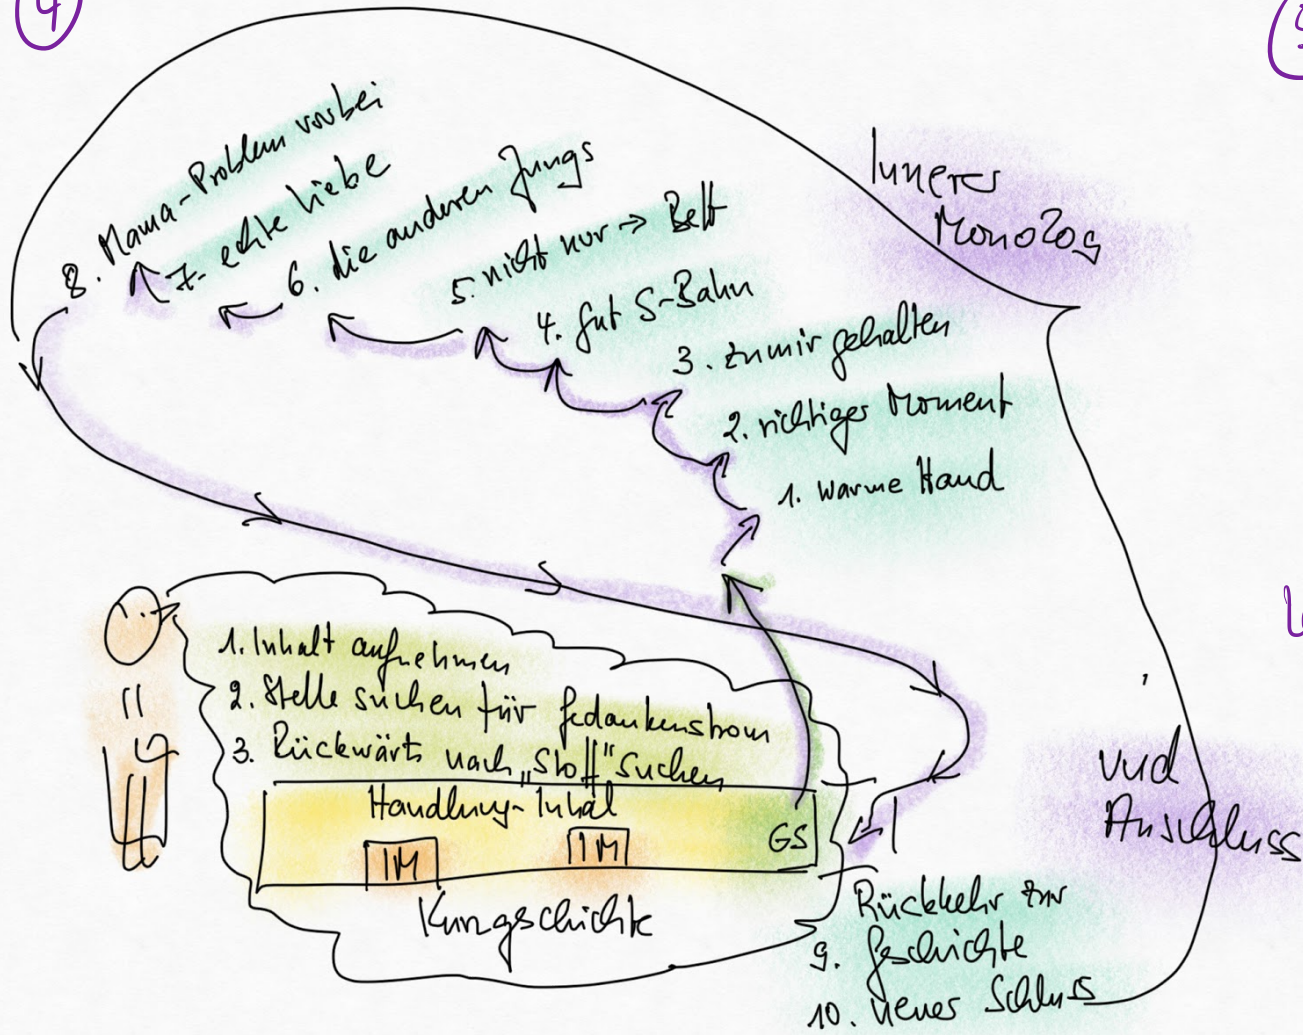 4
8. Mama-Problem vorbei
7. echte Liebe
6. die anderen Jungs
5. nicht nur → Bett
4. gut S-Bahn
3. zu mir gehalten
2. richtiger Moment
1. warme Hand
Innerer
Monolog
1. Inhalt aufnehmen
2. Stelle suchen für Gedankenstrom
3. Rückwärts nach „Stoff" suchen
Handlung-Inhal
IM
IM
GS
Kurzgeschichte
und
Anschluss
Rückkehr zur
9. Geschichte
10. neues Schluss